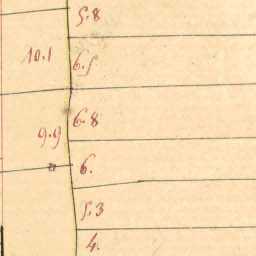 5.8
10.1
6.5
6.8
9.9
6.
5.3
4.